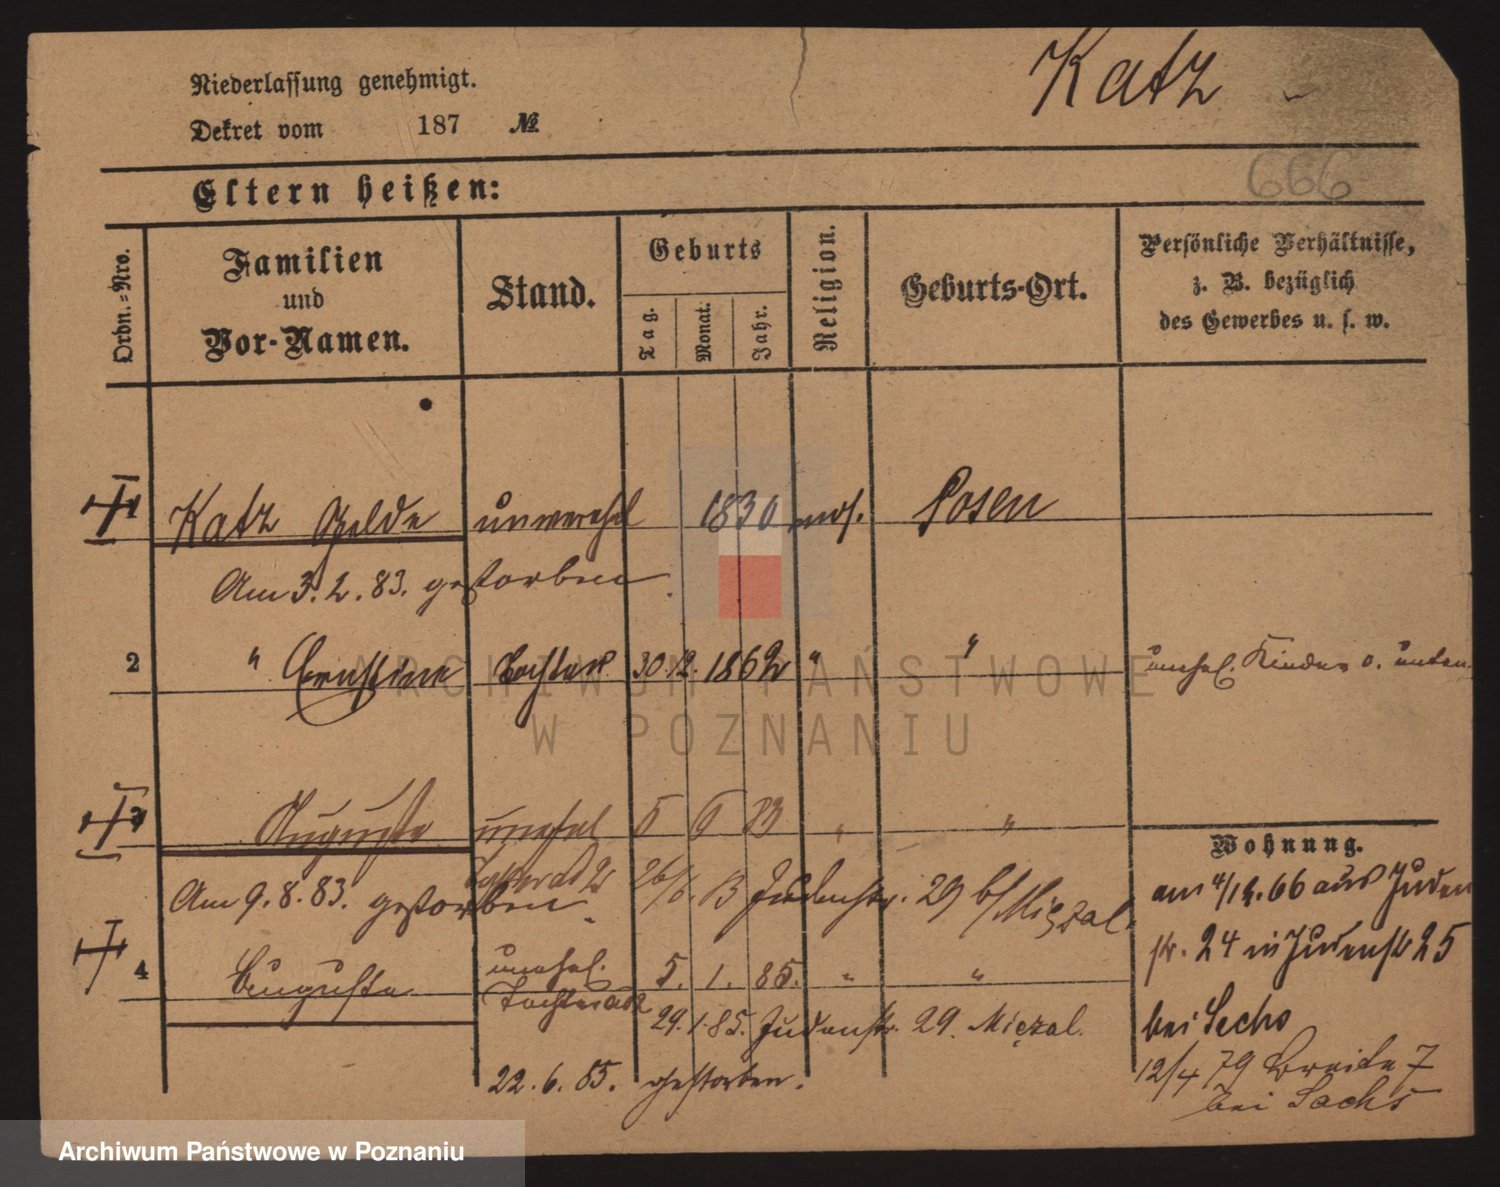 Niederlassung genehmigt.
Dekret vom 187 №
Katz
666
Eltern heißen:
Ordn.=Nro.
Familien
und
Vor-Namen.
Stand.
Geburts
Tag.
Monat.
Jahr.
Religion.
Geburts-Ort.
Persönliche Verhältnisse,
z. B. bezüglich
des Gewerbes u. s. w.
1 Katz Gelde unverehel 1830 mos. Posen
Am 3. 2. 83. gestorben
2 " Ernstine Tochter 30. 12. 1862 " " unehel. Kinder s. unten
3 Auguste unehel 5 6 83 " "
Tochter ad 2 26/6. 83 Judenstr. 29 b/ Mięzal.
Am 9. 8. 83. gestorben
4 Auguste unehel. 5. 1. 85. " "
Tochter ad 2 29. 1. 85. Judenstr. 29. Mięzal.
22. 6. 85. gestorben.
Wohnung.
am 4/12. 66 aus Juden
str. 24 in Judenstr 25
bei Sechs
12/4 79 Breite 7
bei Sachs
ARCHIWUM PAŃSTWOWE
W POZNANIU
Archiwum Państwowe w Poznaniu